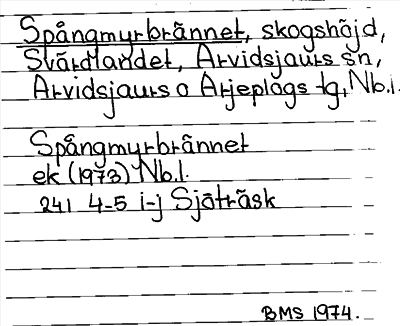 Spångmyrbrännet, skogshöjd,
Svärdlandet, Arvidsjaurs sn,
Arvidsjaurs o Arjeplogs tg, Nb.l.
Spångmyrbrännet
ek (1973) Nb.l.
241 4-5 i-j Sjöträsk
BMS 1974.